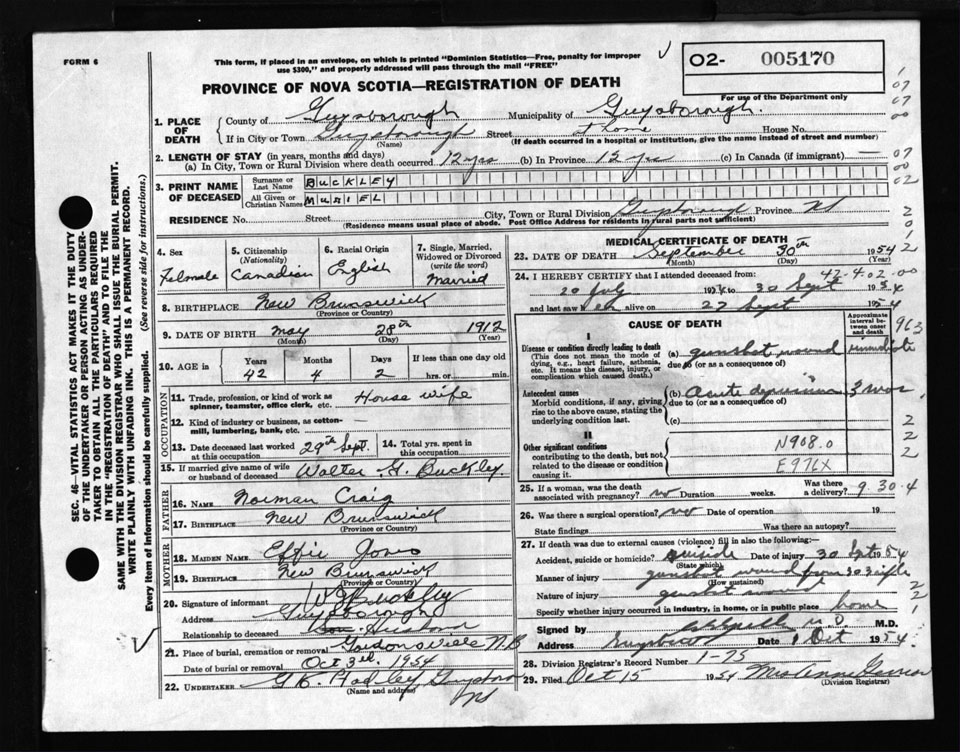 FORM 6
This form, if placed in an envelope, on which is printed "Dominion Statistics—Free, penalty for improper
use $300," and properly addressed will pass through the mail "FREE"
O2- 005170
For use of the Department only
PROVINCE OF NOVA SCOTIA—REGISTRATION OF DEATH
1. PLACE OF DEATH
County of Guysborough Municipality of Guysborough.
If in City or Town Guysborough Street at home House No.
(Name) (If death occurred in a hospital or institution, give the name instead of street and number)
2. LENGTH OF STAY (in years, months and days)
(a) In City, Town or Rural Division where death occurred 12 yrs (b) In Province 12 yrs (c) In Canada (if immigrant) —
3. PRINT NAME OF DECEASED
Surname or Last Name BUCKLEY
All Given or Christian Names MURIEL
RESIDENCE No. Street City, Town or Rural Division Guysborough Province NS
(Residence means usual place of abode. Post Office Address for residents in rural parts not sufficient)
4. Sex Female
5. Citizenship (Nationality) Canadian
6. Racial Origin English
7. Single, Married, Widowed or Divorced (write the word) Married
8. BIRTHPLACE New Brunswick
(Province or Country)
9. DATE OF BIRTH May 28th 1912
(Month) (Day) (Year)
10. AGE in Years 42 Months 4 Days 2 If less than one day old hrs. or min.
OCCUPATION
11. Trade, profession, or kind of work as spinner, teamster, office clerk, etc. House wife
12. Kind of industry or business, as cotton-mill, lumbering, bank, etc. —
13. Date deceased last worked at this occupation 29th Sept. 14. Total yrs. spent in this occupation
15. If married give name of wife or husband of deceased Walter G. Buckley.
FATHER
16. Name Norman Craig
17. Birthplace New Brunswick
(Province or Country)
MOTHER
18. MAIDEN NAME Effie Jones
19. BIRTHPLACE New Brunswick
(Province or Country)
20. Signature of informant W G Buckley
Address Guysborough
Relationship to deceased Husband
21. Place of burial, cremation or removal Gordonsville N.B
Date of burial or removal Oct 3rd. 1954
22. UNDERTAKER G.K. Guysboro
(Name and address) NS
MEDICAL CERTIFICATE OF DEATH
23. DATE OF DEATH September 30th 1954
(Month) (Day)
42-4-02-00
24. I HEREBY CERTIFY that I attended deceased from:
20 July 1954 to 30 Sept 1954
and last saw her alive on 27 Sept 1954
CAUSE OF DEATH
Approximate interval between onset and death
I
Disease or condition directly leading to death
(This does not mean the mode of dying, e.g., heart failure, asthenia, etc. It means the disease, injury, or complication which caused death.)
(a) gunshot wound immediate
due to (or as a consequence of)
Antecedent causes
Morbid conditions, if any, giving rise to the above cause, stating the underlying condition last.
(b) Acute depression 3 mos
due to (or as a consequence of)
(c)
II
Other significant conditions
contributing to the death, but not related to the disease or condition causing it.
N908.0
E976X
963
25. If a woman, was the death associated with pregnancy? no Duration weeks. Was there a delivery? 9 30.4
26. Was there a surgical operation? no Date of operation 19
State findings Was there an autopsy?
27. If death was due to external causes (violence) fill in also the following:
Accident, suicide or homicide? suicide Date of injury 30 Sept 1954
(State which)
Manner of injury gunshot wound from 303 rifle
(How sustained)
Nature of injury gunshot wound
Specify whether injury occurred in industry, in home, or in public place home
Signed by M.D. M.D.
Address Guysboro Date 1 Oct 1954
28. Division Registrar's Record Number 1-75
29. Filed Oct 15 1954 Mrs Annie
(Division Registrar)
SEC. 46—VITAL STATISTICS ACT MAKES IT THE DUTY
OF THE UNDERTAKER OR PERSON ACTING AS UNDERTAKER TO OBTAIN ALL THE PARTICULARS REQUIRED
IN THE "REGISTRATION OF DEATH" AND TO FILE THE
SAME WITH THE DIVISION REGISTRAR WHO SHALL ISSUE THE BURIAL PERMIT.
WRITE PLAINLY WITH UNFADING INK. THIS IS A PERMANENT RECORD.
Every item of information should be carefully supplied. (See reverse side for instructions.)